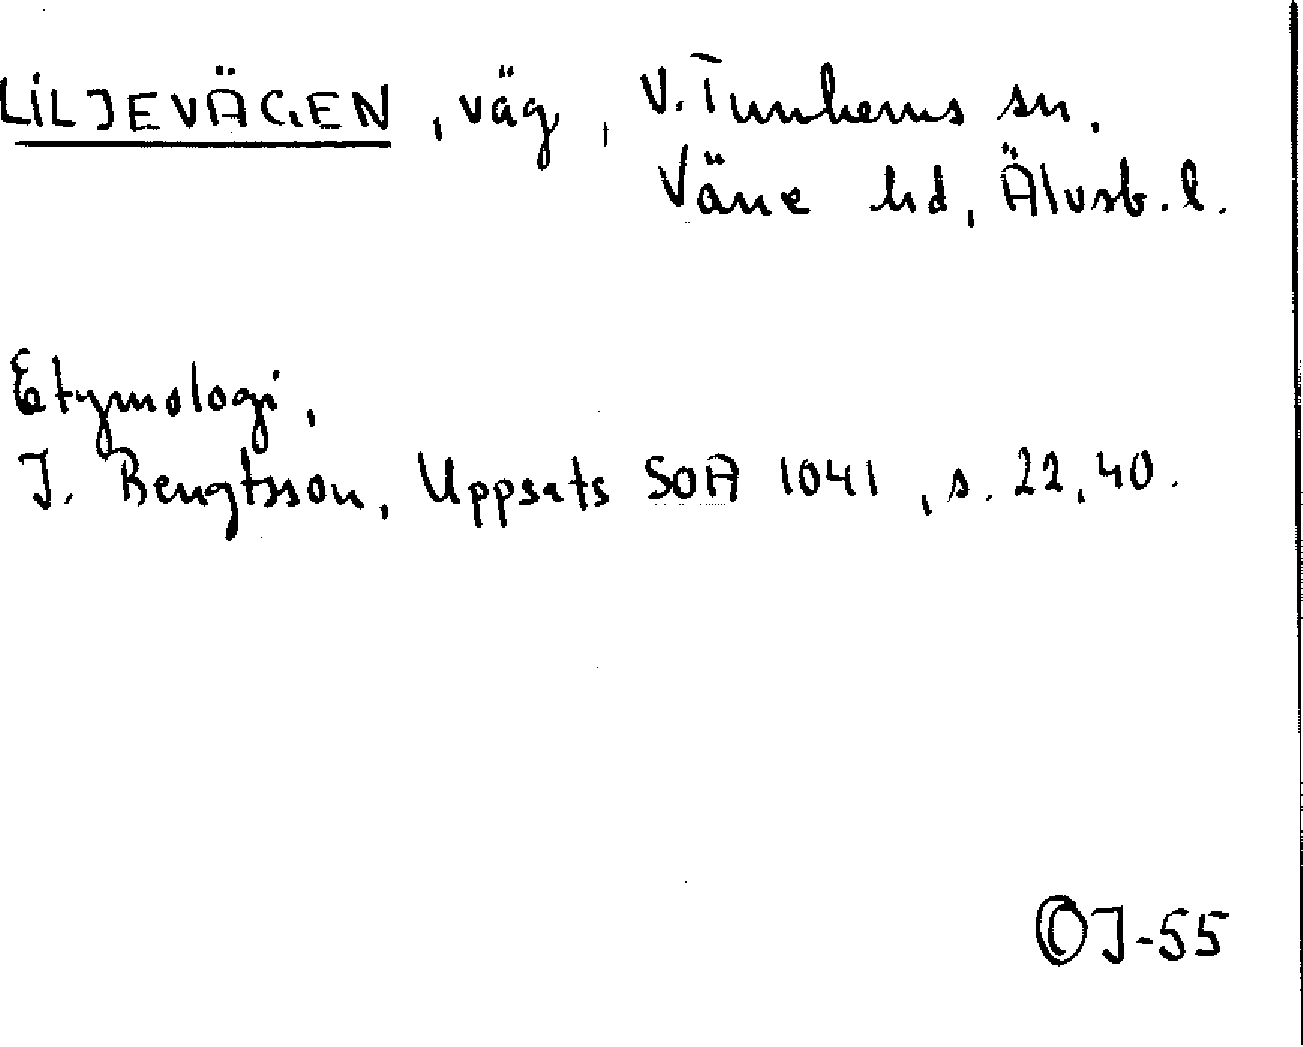 LILJEVÄGEN, väg, V. Tunhems sn.
Väne hd, Älvsb. l.
Etymologi,
J. Bengtsson, Uppsats SOA 1041, s. 22, 40.
©J-55